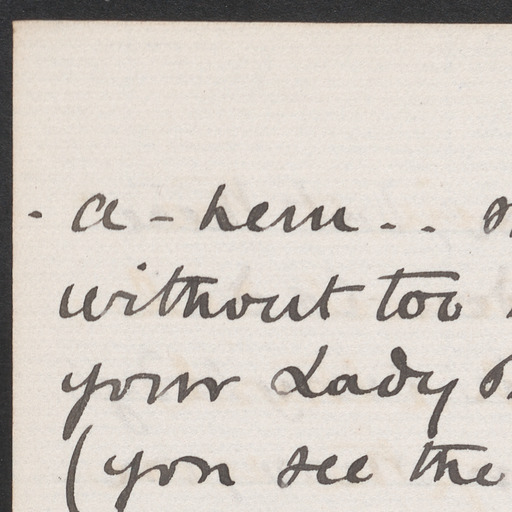 - a-hem . .
without too
your Lady
(you see the